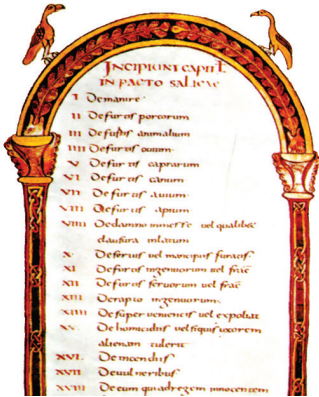 INCIPIUNT CAPITL
IN PACTO SALICAE
I De manire
II De furtis porcorum
III De furtis animalium
IIII De furtis ouium
V De furtis caprarum
VI De furtis canum
VII De furtis auium
VIII De furtis apium
VIIII De damno in messe uel qualibet
clausura inlatum
X De seruis uel mancipiis furatis
XI De furtis ingenuorum uel
XII De furtis seruorum uel
XIII De rapto ingenuorum
XIIII De superuenientis uel expoliat
XV De homicidiis uel si quis uxorem
alienam tulerit
XVI De incendiis
XVII De uulneribus
XVIII De eum qui ad regem innocentem